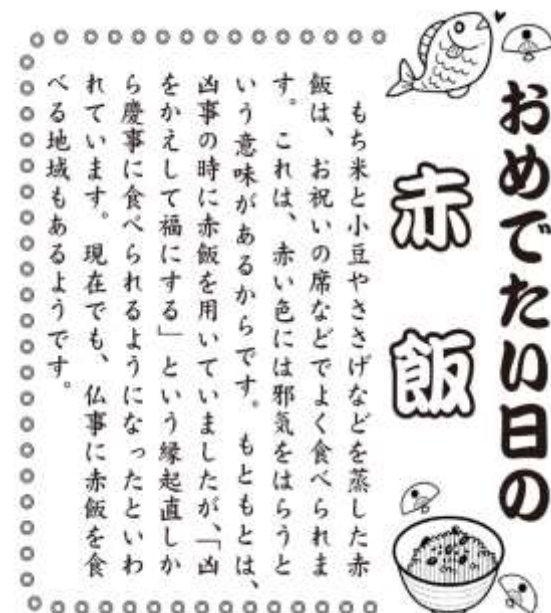 おめでたい日の
赤飯
もち米と小豆やささげなどを蒸した赤
飯は、お祝いの席などでよく食べられま
す。これは、赤い色には邪気をはらうと
いう意味があるからです。もともとは、
凶事の時に赤飯を用いていましたが、「凶
をかえして福にする」という縁起直しか
ら慶事に食べられるようになったといわ
れています。現在でも、仏事に赤飯を食
べる地域もあるようです。